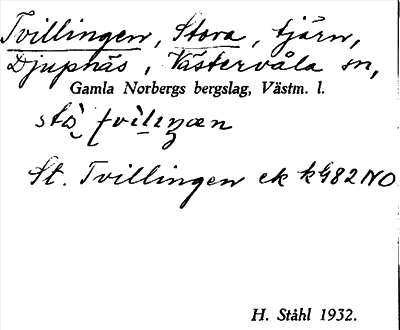 Tvillingen, Stora, tjärn,
Djupnäs, Västervåla sn,
Gamla Norbergs bergslag, Västm. l.
St. Tvillingen ek k482NO
H. Ståhl 1932.